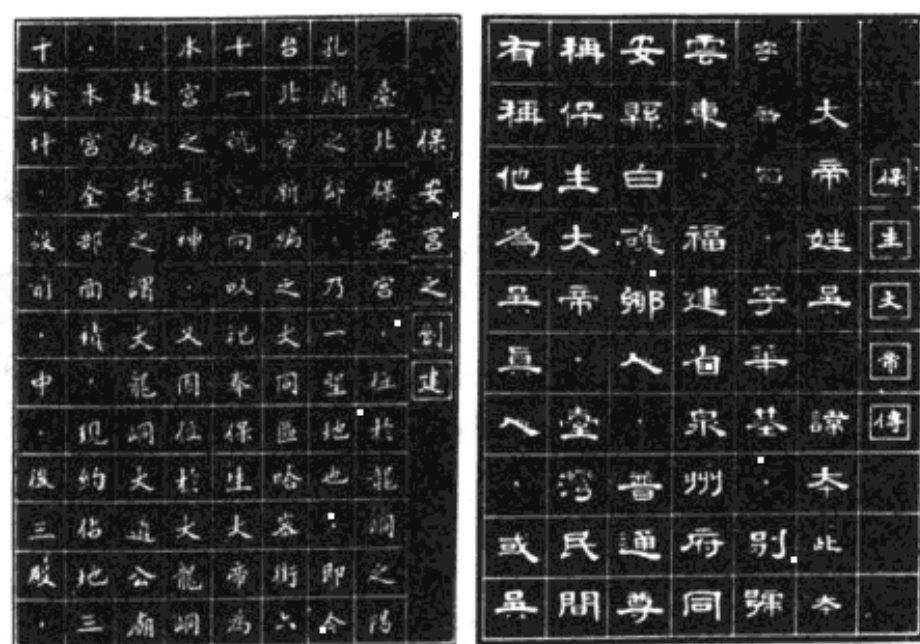 保生大帝傳
大帝姓吳 諱夲此夲
字華基·別號
雲東·福建省泉州府同
安縣白礁鄉人·普通尊
稱保生大帝·臺灣民間
有稱他為吳真人·或吳
保安宮之創建
臺北保安宮·位於龍峒之陽
孔廟之鄰·乃一聖地也·即今
台北市新編之大同區哈密街六
十一號·向以祀奉保生大帝為
本宮之主神·又因位於大龍峒
·故俗稱之謂大龍峒大道公廟
·本宮全部面積·現約佔地三
十·設前·中·後三殿·三